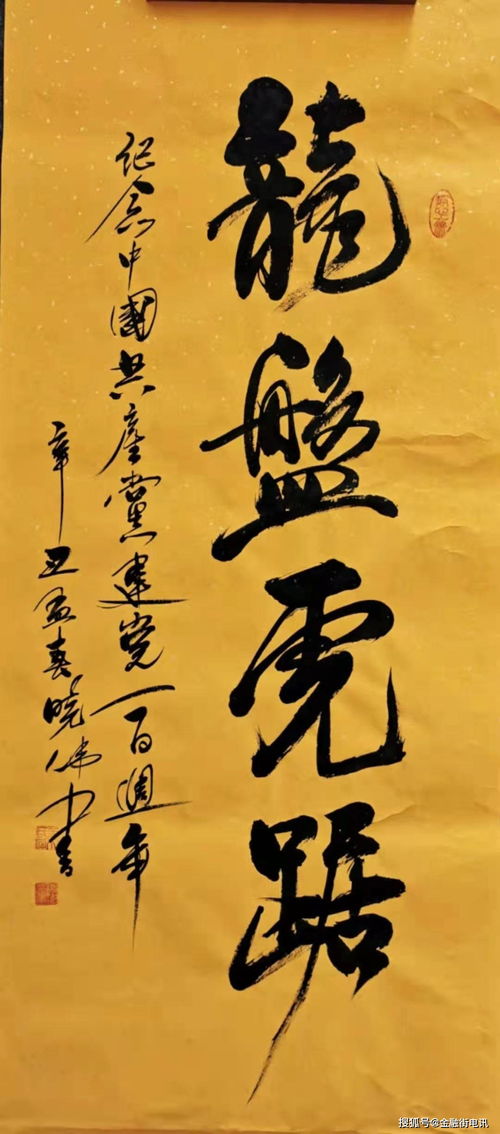 龍盤虎踞
纪念中國共產黨建党一百週年
辛丑孟春曉伟书
搜狐号@金融街电讯